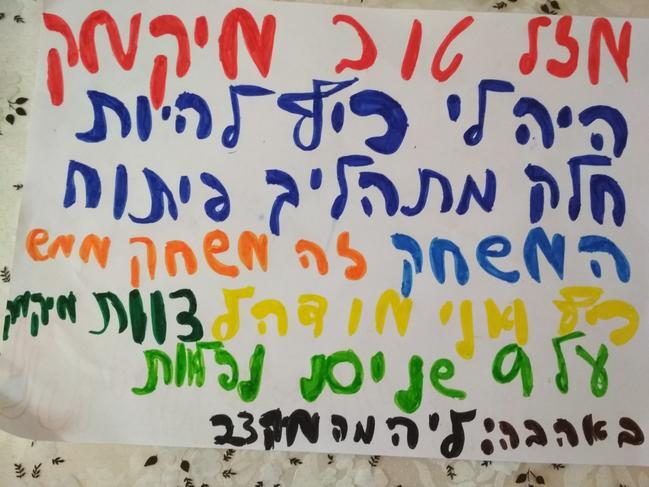 מזל טוב מיקמק
היה לי כיף להיות
חלק מתהליך פיתוח
המשחק זה משחק ממש
כיף ואני מודה ל צוות מיקמק
על 9 שנים נפלאות
באהבה: ליה מה מיק23